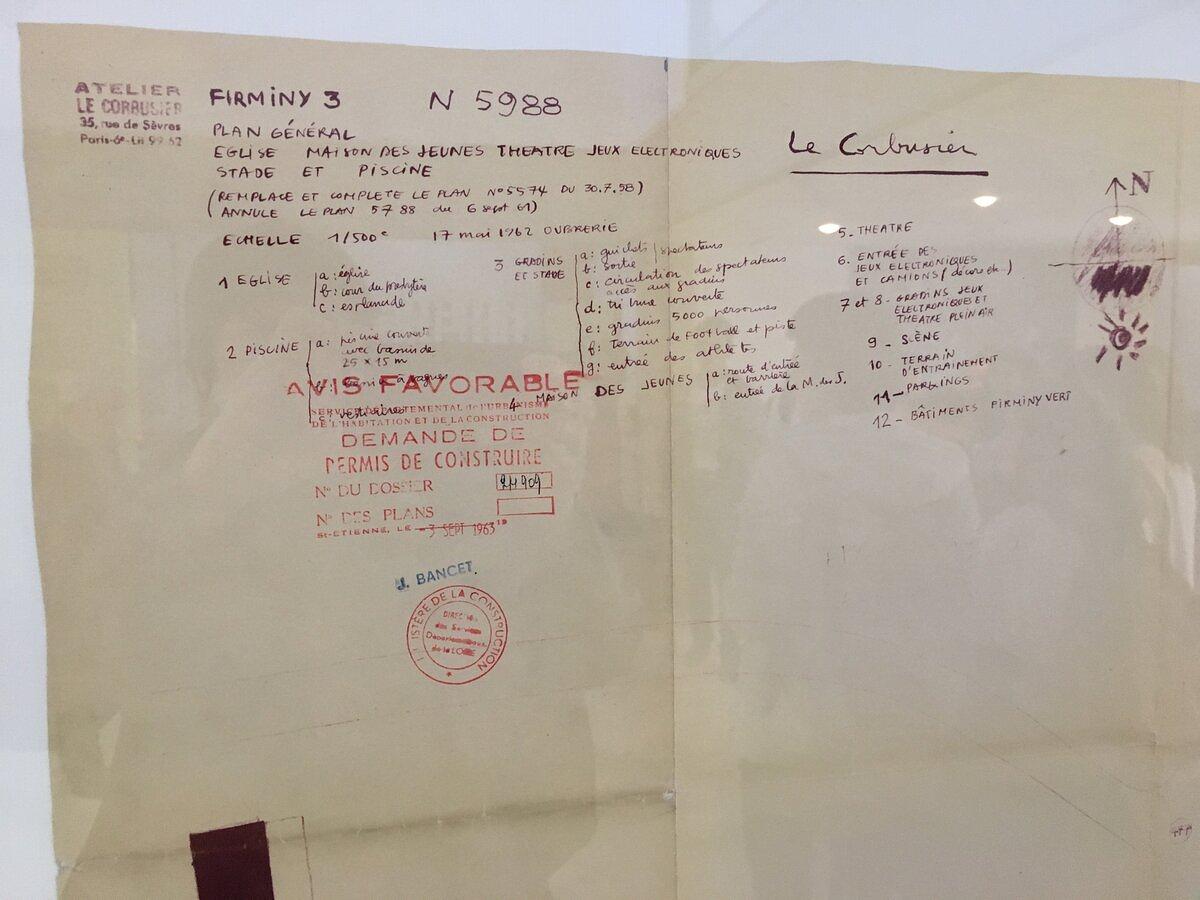 ATELIER
LE CORBUSIER
35, rue de Sèvres
Paris-6e - Lit 99 62
FIRMINY 3 N 5988
PLAN GÉNÉRAL
EGLISE MAISON DES JEUNES THEATRE JEUX ELECTRONIQUES
STADE ET PISCINE
(REMPLACE ET COMPLETE LE PLAN N°5574 DU 30.7.58)
(ANNULE LE PLAN 5788 du 6 sept 61)
ECHELLE 1/500e 17 mai 1962 OUBRERIE
Le Corbusier
N
1 EGLISE
a: église
b: cour du presbytère
c: esplanade
2 PISCINE
a: piscine couverte
avec bassin de
25 x 15 m
b: bassin à vagues
c: vestiaires
3 GRADINS
ET STADE
a: guichets spectateurs
b: sortie
c: circulation des spectateurs
accès aux gradins
d: tribune couverte
e: gradins 5000 personnes
f: Terrain de Football et piste
g: entrée des athletes
4 MAISON DES JEUNES
a: route d'entrée
et barrière
b: entrée de la M. des J.
5 - THEATRE
6. ENTRÉE DES
JEUX ELECTRONIQUES
ET CAMIONS (décors etc...)
7 et 8 - GRADINS JEUX
ELECTRONIQUES ET
THEATRE PLEIN AIR
9 - SCÈNE
10 - TERRAIN
D'ENTRAINEMENT
11 - PARKINGS
12 - BÂTIMENTS FIRMINY VERT
AVIS FAVORABLE
SERVICE DÉPARTEMENTAL de l'URBANISME
DE L'HABITATION ET DE LA CONSTRUCTION
DEMANDE DE
PERMIS DE CONSTRUIRE
N° DU DOSSIER 24909
N° DES PLANS
St-ETIENNE, LE - 3 SEPT 1963 19
J. BANCET.
MINISTÈRE DE LA CONSTRUCTION
DIRECTION
des Services
Départementaux
de la LOIRE